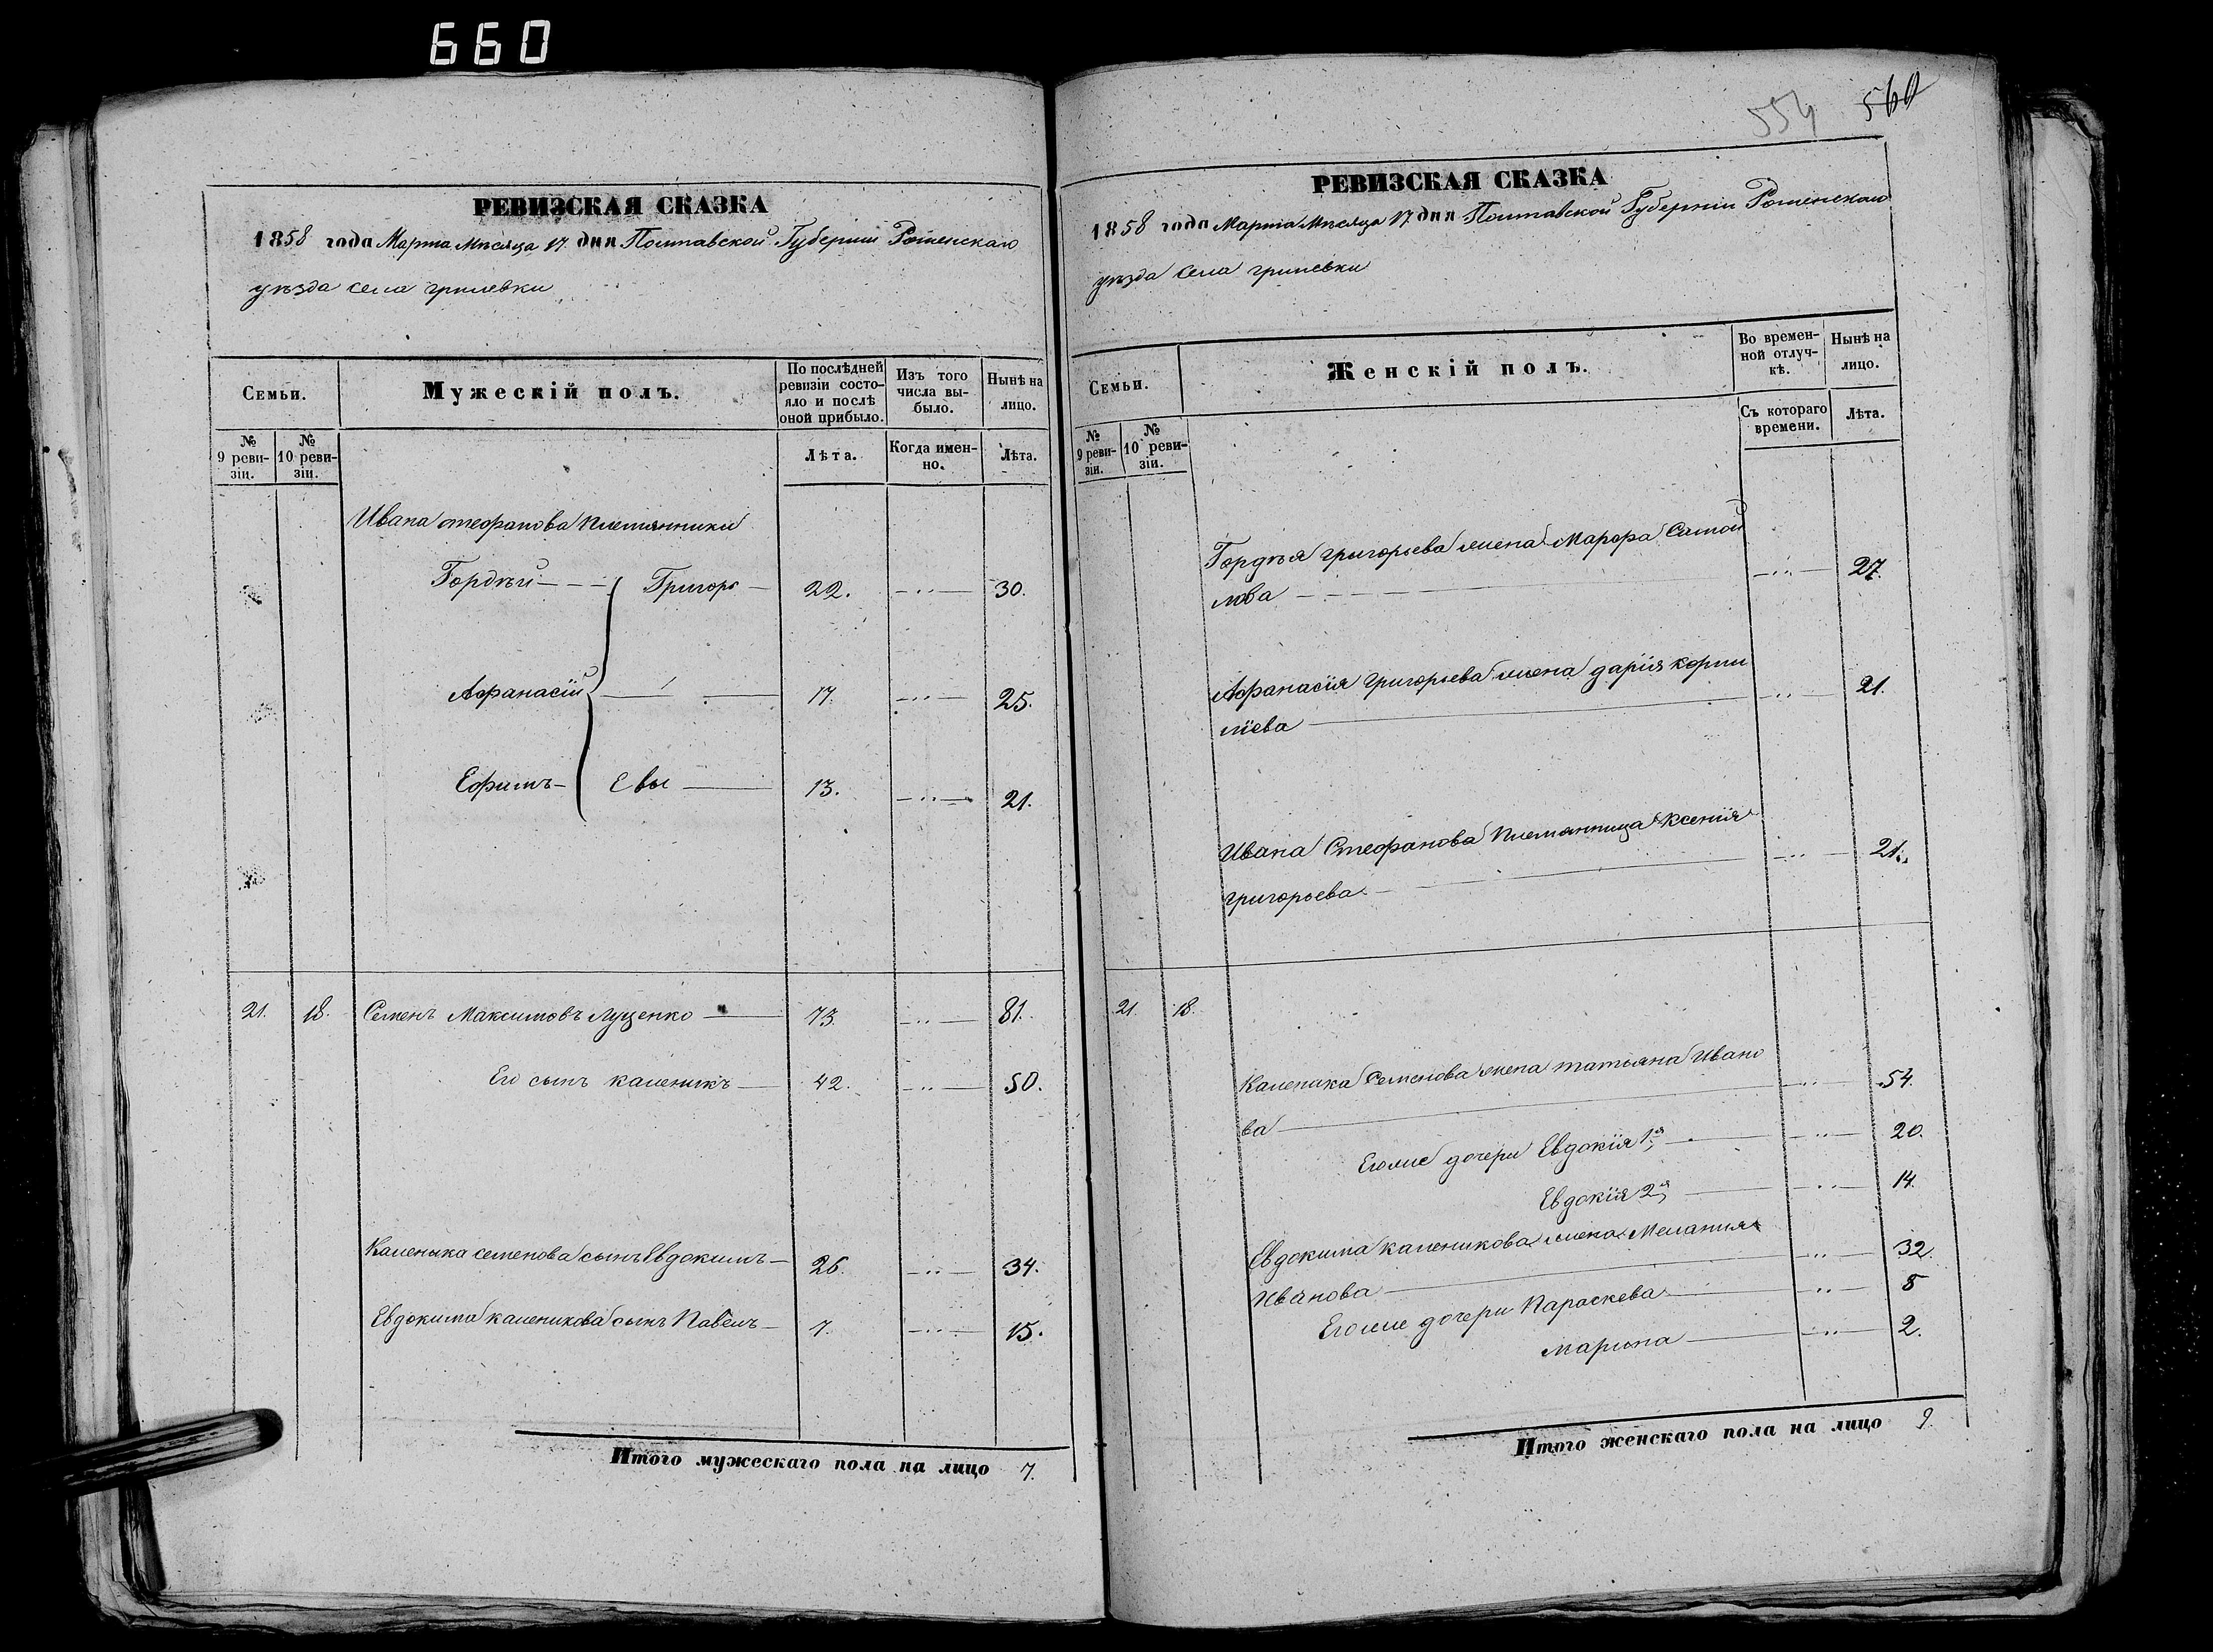 660
РЕВИЗСКАЯ СКАЗКА
1858 года Марта Мѣсяца 17. дня Полтавской Губерніи Роменскаго
уѣзда села грилевки
Семьи.
Мужескій полъ.
По послѣдней ревизіи состояло и послѣ оной прибыло.
Изъ того числа выбыло.
Нынѣ на лицо.
№ 9 ревизіи.
№ 10 ревизіи.
Лѣта.
Когда именно.
Лѣта.
Ивана стефанова племянники
Гордѣй Григорь 22. 30.
Афанасій 17. 25.
Ефимъ Евы 13. 21.
21. 18. Семенъ Максимовъ луценко 73. 81.
Его сынъ каленикъ 42. 50.
Каленика семенова сынъ Евдокимъ 26. 34.
Евдокима каленикова сынъ Павелъ 7. 15.
Итого мужескаго пола на лицо 7.
554 560
РЕВИЗСКАЯ СКАЗКА
1858 года Марта Мѣсяца 17. дня Полтавской Губерніи Роменскаго
уѣзда села грилевки
Семьи.
Женскій полъ.
Во временной отлучкѣ.
Нынѣ на лицо.
№ 9 ревизіи.
№ 10 ревизіи.
Съ котораго времени.
Лѣта.
Гордѣя григорьева жена Марфа Самой
лова 27.
Афанасія григорьева жена дарія корни
ліева 21.
Ивана Стефанова племянница Ксенія
григорьева 21.
21. 18.
Каленика Семенова жена татьяна Ивано
ва 54.
Его же дочери Евдокія 1я 20.
Евдокія 2я 14.
Евдокима каленикова жена Мелания
Иванова 32.
Его же дочери Параскева 8
марина 2.
Итого женскаго пола на лицо 9.